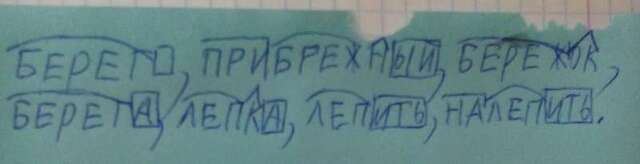 БЕРЕГ, ПРИБРЕЖНЫЙ, БЕРЕЖОК,
БЕРЕГА, ЛЕПКА, ЛЕПИТЬ, НАЛЕПИТЬ.